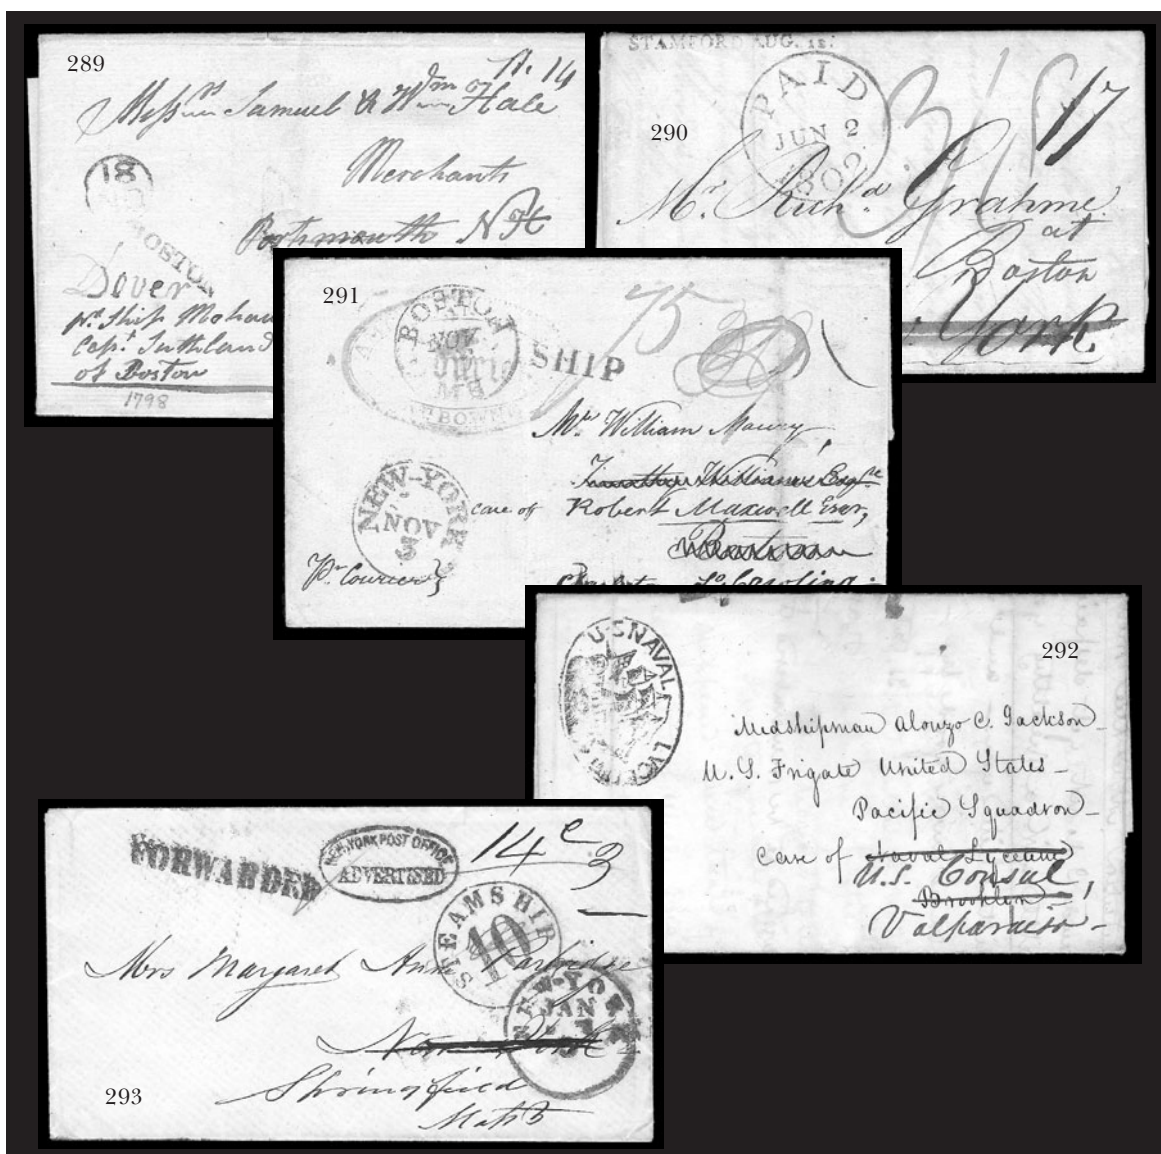 289
A. 14
Messrs Samuel & Wm Hale
Merchants
Portsmouth NH
18
BOSTON
Dover
pr. Ship Mohaw
Capt. Sutherland
of Boston
1798
STAMFORD AUG. 12:
290
PAID
JUN 2
1802
17
Mr. Richd Grahme
at
Boston
York
291
BOSTON
NOV
MS
SHIP
75
Mr William Maury,
Timothy Williams Esqre
care of Robert Maxwell Esqr,
NEW-YORK
NOV
3
Pr Courier
So. Carolina
292
U.S NAVAL LYCEUM
Midshipman Alonzo C. Jackson
U. S. Frigate United States
Pacific Squadron
Care of Naval Lyceum
U.S. Consul,
Brooklin
Valparaiso
FORWARDED
NEW-YORK POST OFFICE
ADVERTISED
14c
3
STEAMSHIP
10
Mrs Margaret Ann Partridge
NEW-YORK
JAN
New York
Springfield
Mass
293